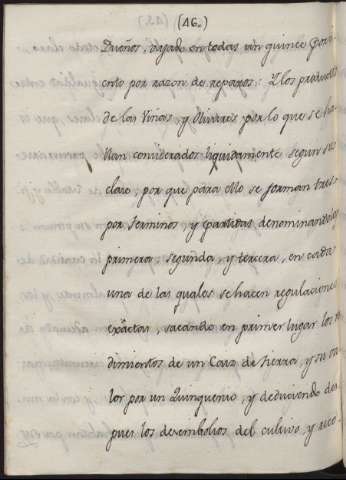 (46.)
Dueños, vajado en todas un quince por
ciento por razon de reparos: Y los productos
de las Viñas, y Olivares por lo que se ha-
llan considerados liquidamente segun su
clase, por que para ello se forman tres
por terminos, y partidas denominandolas
primera, segunda, y tercera, en cada
una de las quales se hacen regulaciones
exâctas, sacando en primer lugar los ren-
dimientos de un Caiz de tierra, y su va-
lor por un Quinquenio, y deduciendo des-
pues los desembolsos del cultivo, y reco-